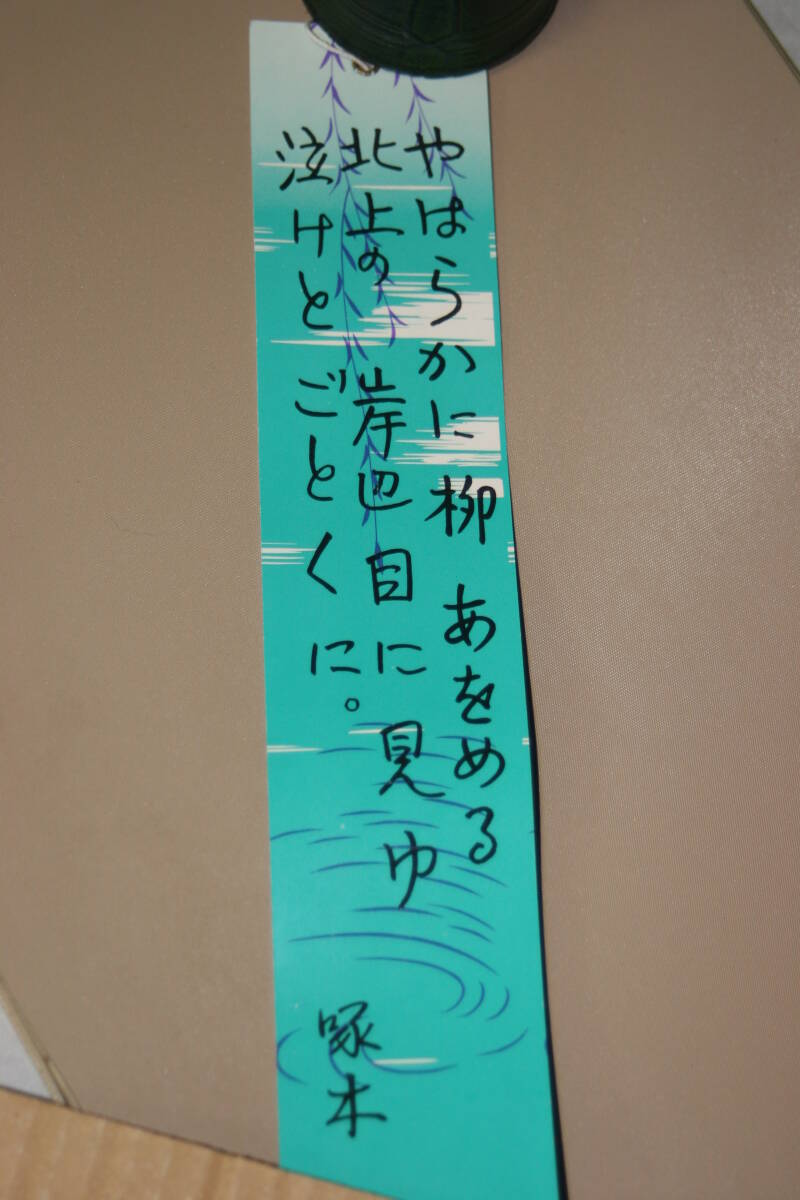 やはらかに 柳 あをめる
北上の 岸辺 目に 見ゆ
泣けと ごとくに。
啄木